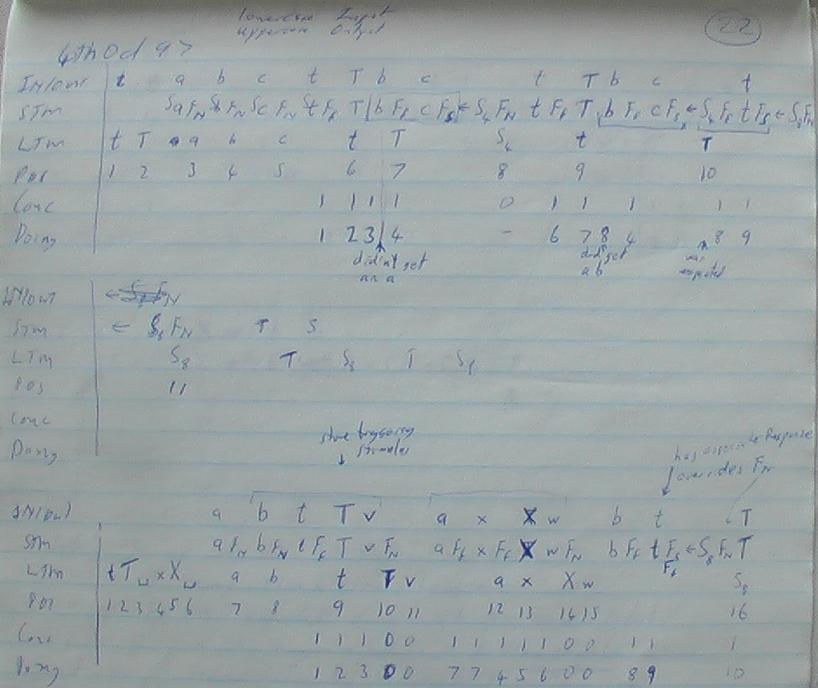 lowercase Input
uppercase Output
22
4th Oct 97
IN/OUT t a b c t T b c t T b c t
STM S a F_N S b F_N S c F_N S t F_f T b F_f c F_S ← S_4 F_N t F_f T b F_f c F_S ← S_4 F_f t F_S ← S_8 F_N
LTM t T a b c t T S_4 t T
POS 1 2 3 4 5 6 7 8 9 10
Conc 1 1 1 1 0 1 1 1 1 1
Doing 1 2 3 4 – 6 7 8 4 8 9
didn't get an a
did get a b
was expected
IN/OUT
STM ← S_8 F_N T S
LTM S_8 T S_8 T S_8
POS 11
Conc
Doing
store triggering stimulus
has associate Response
overrides F_N
IN/OUT a b t T v a x X w b t T
STM a F_N b F_N t F_f T v F_N a F_f x F_f X w F_N b F_f t F_S ← S_8 F_N T
F_f
LTM t T ␣ x X ␣ a b t T v a x X w S_8
POS 1 2 3 4 5 6 7 8 9 10 11 12 13 14 15 16
Conc 1 1 1 0 0 1 1 1 1 1 0 0 1 1 1
Doing 1 2 3 0 0 7 7 4 5 6 0 0 8 9 10